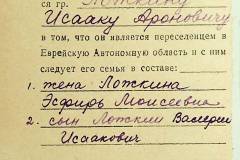 ся гр. Ложкину
Исааку Ароновичу
в том, что он является переселенцем в
Еврейскую Автономную область и с ним
следует его семья в составе:
1. жена Ложкина
Эсфирь Моисеевна
2. сын Ложкин Валерий
Исаакович